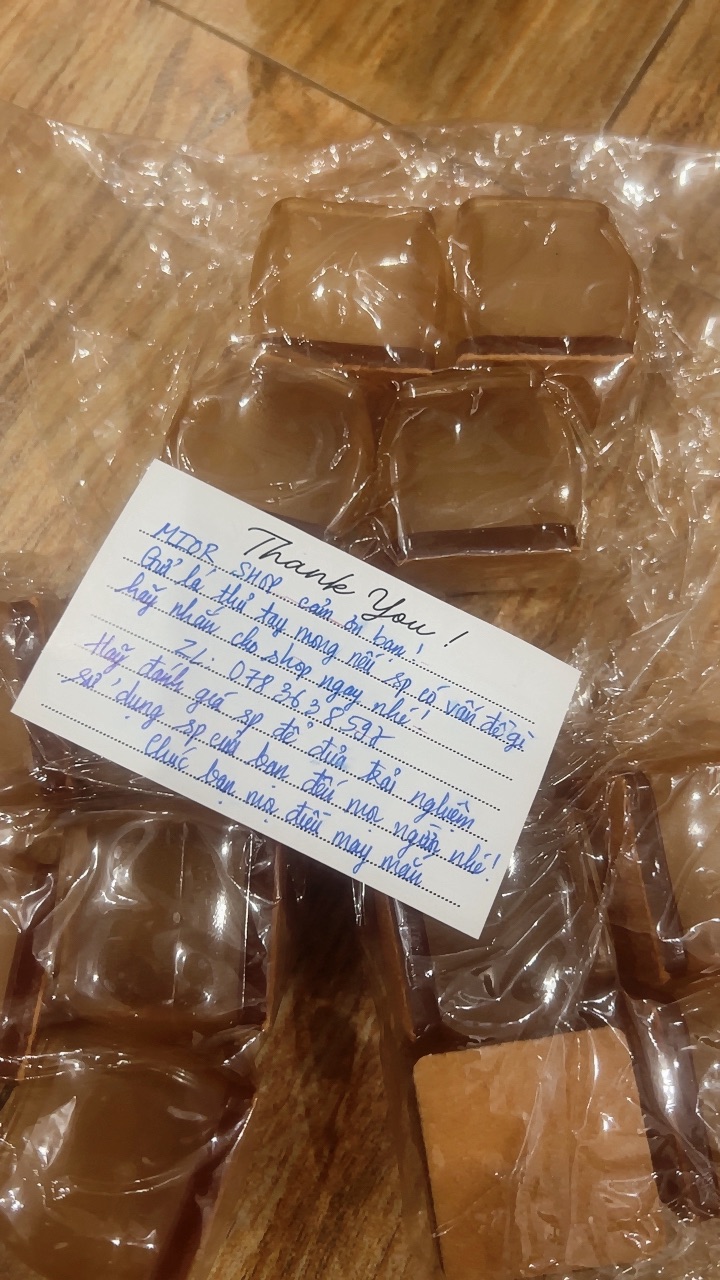 Thank You !
MTDR SHOP cảm ơn bạn!
Gửi lá thư tay mong nếu sp có vấn đề gì
hãy nhắn cho shop ngay nhé!
ZL: 078 363 8597
Hãy đánh giá sp để đưa trải nghiệm
sử dụng sp của bạn đến mọi người nhé!
Chúc bạn mọi điều may mắn